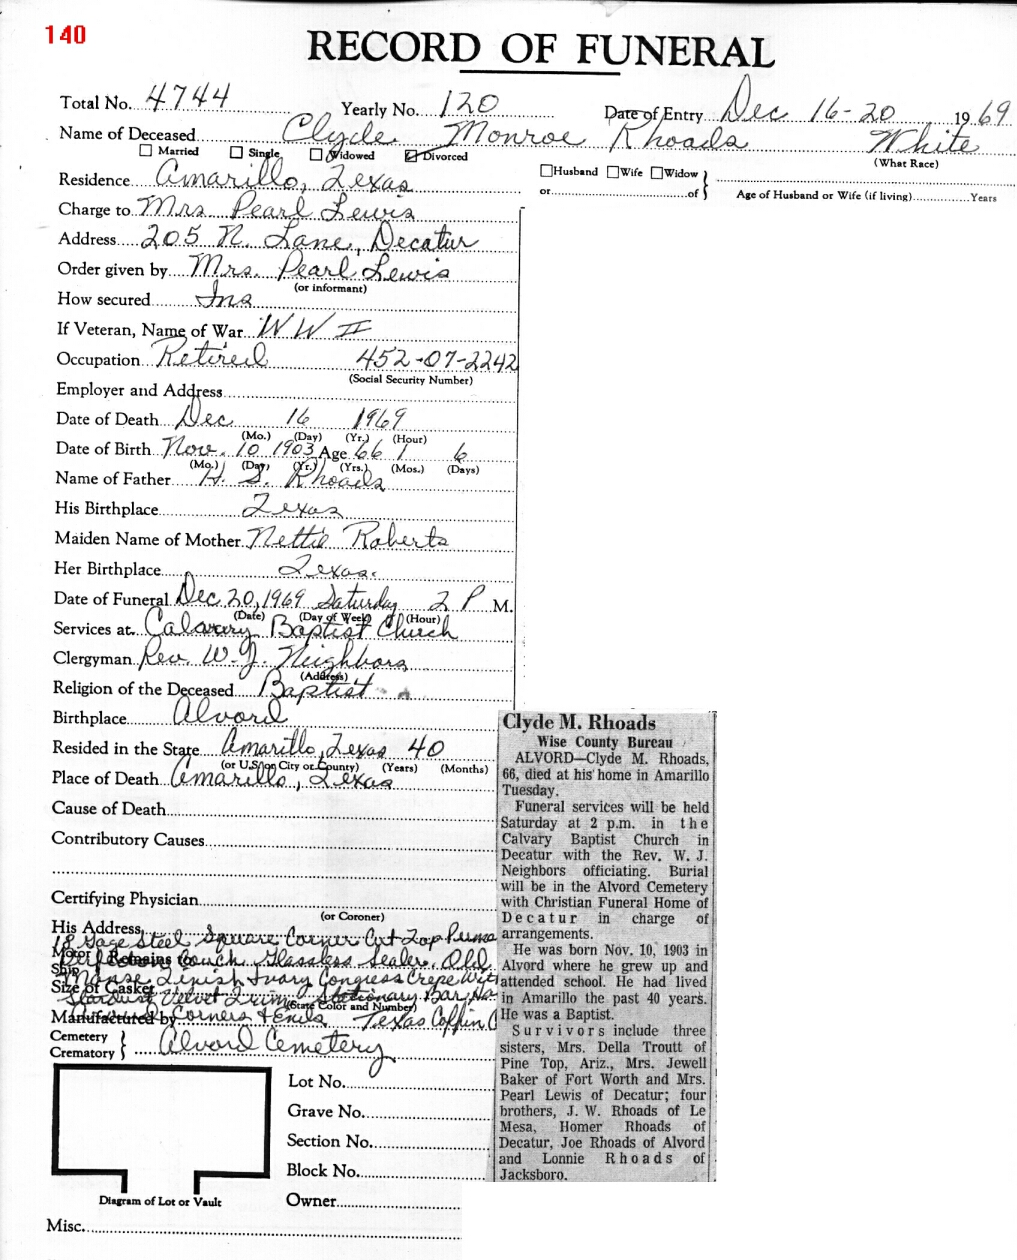 140
RECORD OF FUNERAL
Total No. 4744 Yearly No. 120 Date of Entry Dec 16-20 1969
Name of Deceased Clyde Monroe Rhoads White
(What Race)
Married Single Widowed Divorced
Husband Wife Widow
or of Age of Husband or Wife (if living) Years
Residence Amarillo, Texas
Charge to Mrs Pearl Lewis
Address 205 N. Lane, Decatur
Order given by Mrs. Pearl Lewis
(or informant)
How secured Ins
If Veteran, Name of War WW II
Occupation Retired 452-07-2242
(Social Security Number)
Employer and Address
Date of Death Dec 16 1969
(Mo.) (Day) (Yr.) (Hour)
Date of Birth Nov. 10 1903 Age 66 1 6
(Mo.) (Day) (Yr.) (Yrs.) (Mos.) (Days)
Name of Father H. S. Rhoads
His Birthplace Texas
Maiden Name of Mother Nettie Roberts
Her Birthplace Texas.
Date of Funeral Dec 20, 1969 Saturday 2 P M.
(Date) (Day of Week) (Hour)
Services at Calvary Baptist Church
Clergyman Rev. W. J. Neighbors
(Address)
Religion of the Deceased Baptist
Birthplace Alvord
Resided in the State Amarillo, Texas 40
(or U.S. or City or County) (Years) (Months)
Place of Death Amarillo, Texas
Cause of Death
Contributory Causes
Certifying Physician
(or Coroner)
His Address
18 Gage Steel Square Corner Cut Top
Motor Remains to Couch Glassless Sealer, Old
Ship
Finish Ivory Congress Crepe With
Size of Casket
Stardust Velvet Trim, Stationary Bar,
(State Color and Number)
Manufactured by Corners & Ends Texas Coffin C
Cemetery
Crematory Alvord Cemetery
Lot No.
Grave No.
Section No.
Block No.
Diagram of Lot or Vault
Owner
Misc.
Clyde M. Rhoads
Wise County Bureau
ALVORD—Clyde M. Rhoads,
66, died at his home in Amarillo
Tuesday.
Funeral services will be held
Saturday at 2 p.m. in the
Calvary Baptist Church in
Decatur with the Rev. W. J.
Neighbors officiating. Burial
will be in the Alvord Cemetery
with Christian Funeral Home of
Decatur in charge of
arrangements.
He was born Nov. 10, 1903 in
Alvord where he grew up and
attended school. He had lived
in Amarillo the past 40 years.
He was a Baptist.
Survivors include three
sisters, Mrs. Della Troutt of
Pine Top, Ariz., Mrs. Jewell
Baker of Fort Worth and Mrs.
Pearl Lewis of Decatur; four
brothers, J. W. Rhoads of Le
Mesa, Homer Rhoads of
Decatur, Joe Rhoads of Alvord
and Lonnie Rhoads of
Jacksboro.